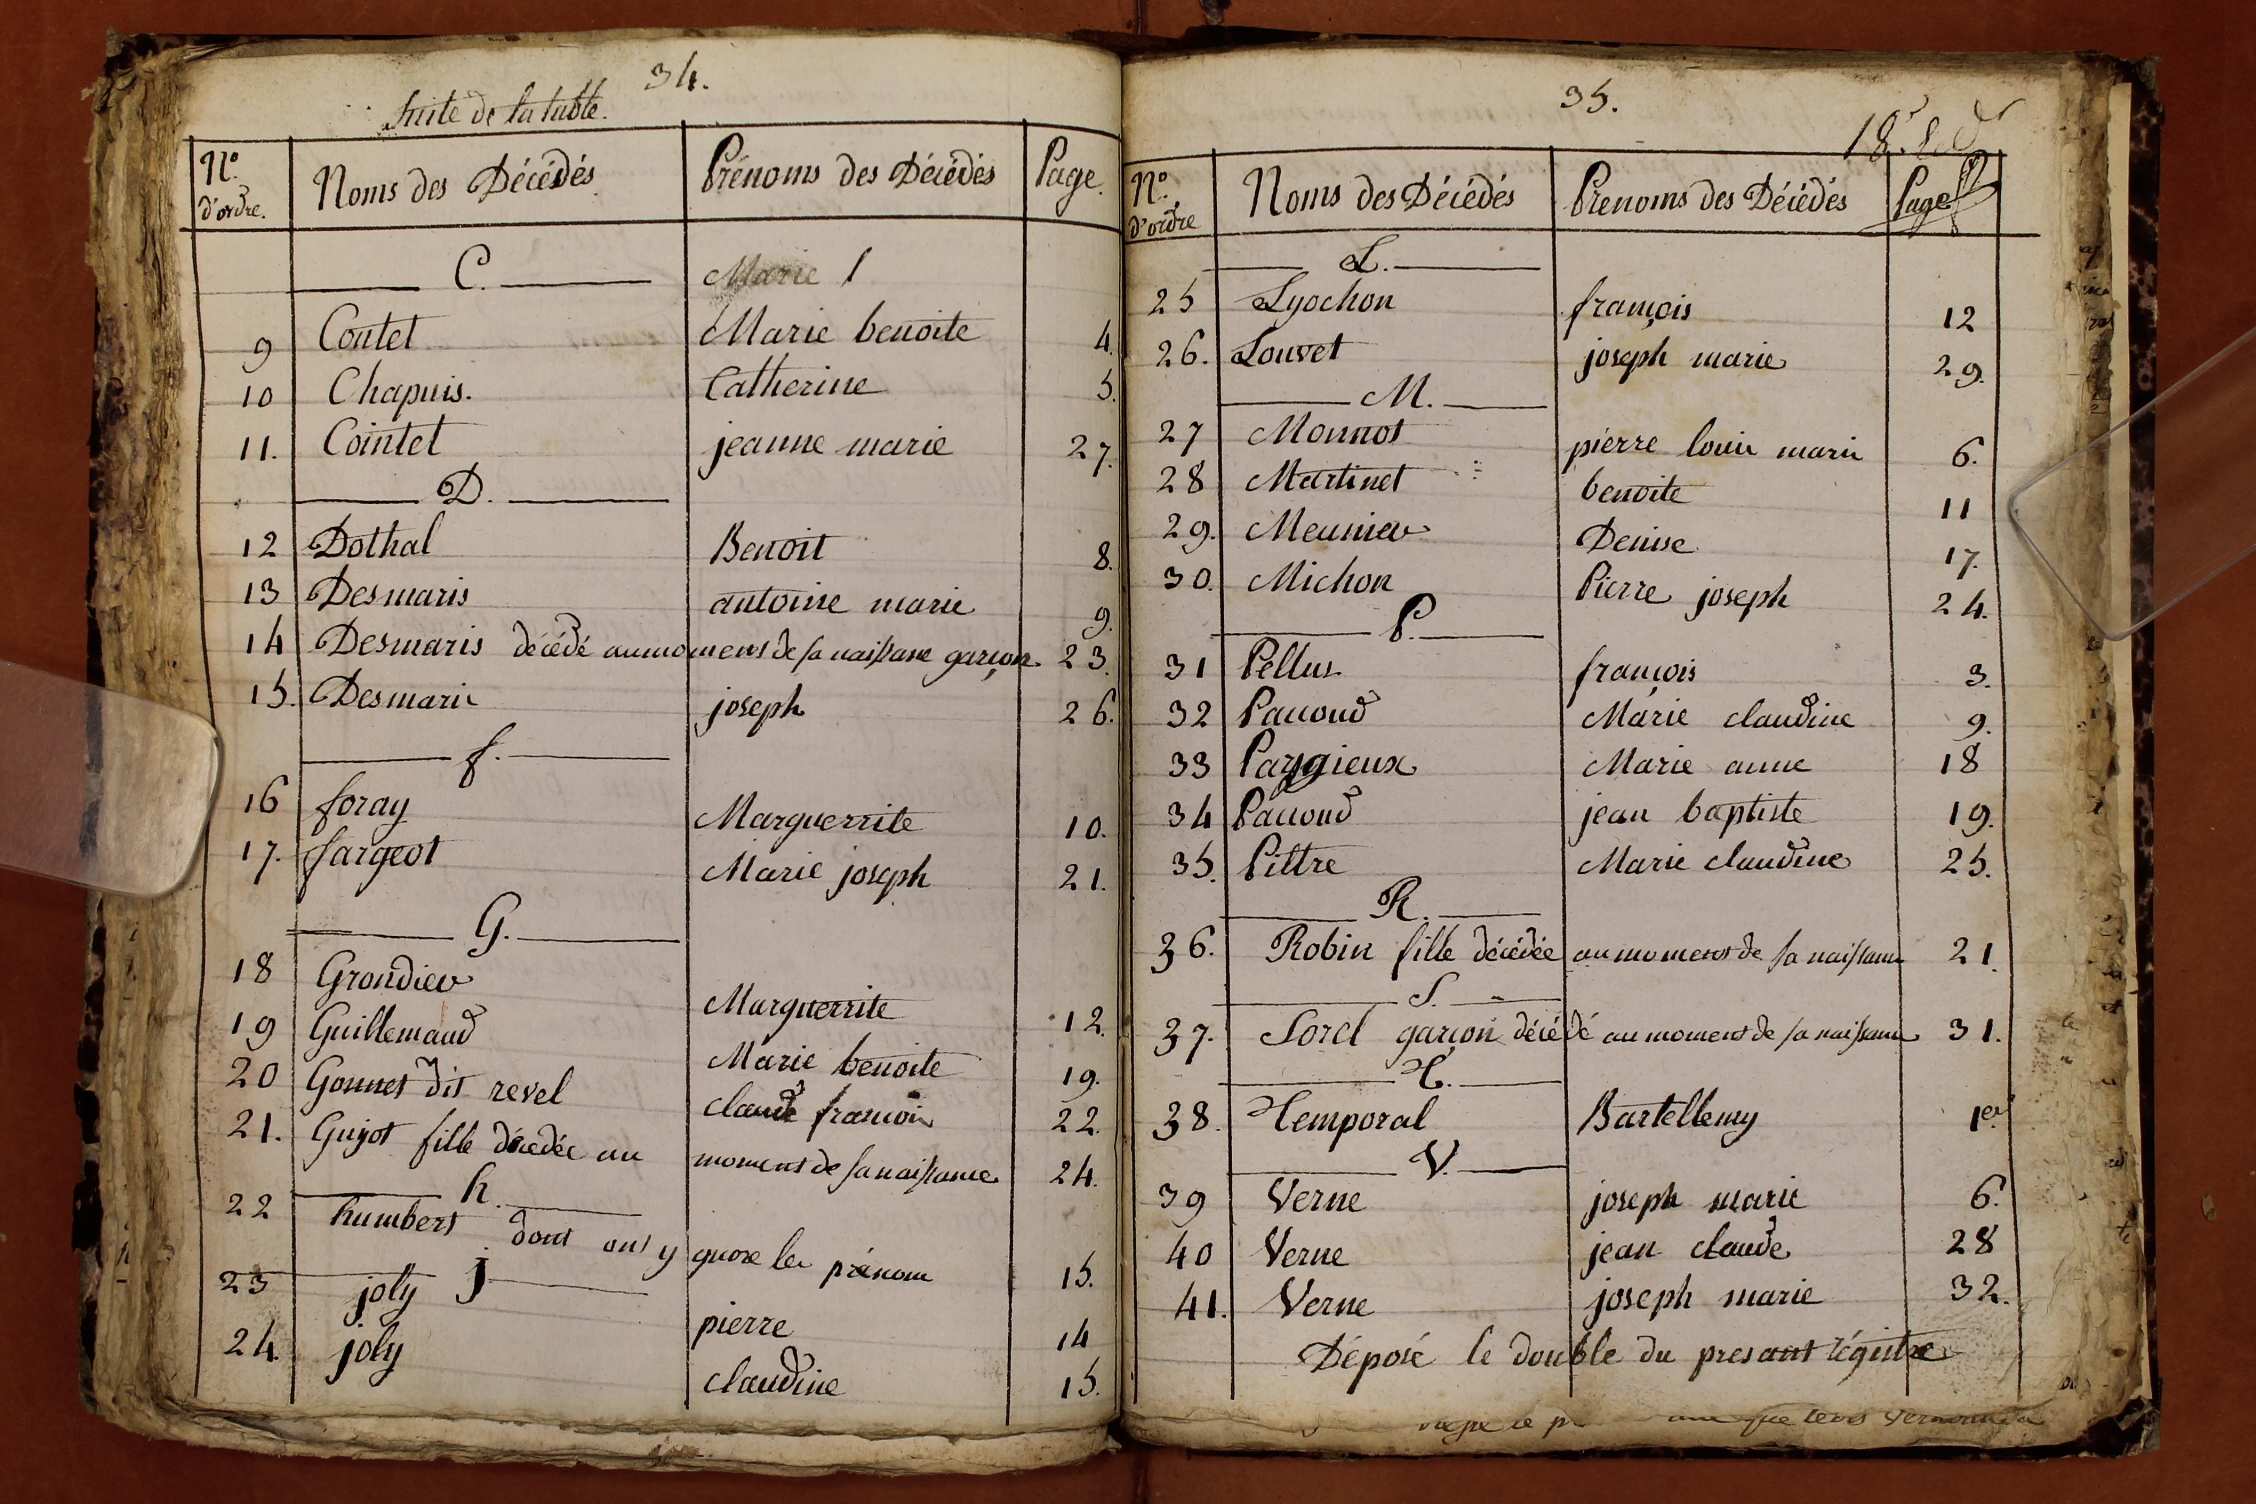 34.
Suite de la table.
N.o d'ordre. Noms des Décédés Prénoms des Décédés Page.
C. Marie
9 Contet Marie benoite 4.
10 Chapuis. Catherine 5.
11. Cointet jeanne marie 27.
D.
12 Dothal Benoit 8.
13 Desmaris antoine marie 9.
14 Desmaris décédé au moment de sa naissance garçon 23.
15. Desmaris joseph 26.
f.
16 foray Marguerrite 10.
17. fargeot Marie joseph 21.
G.
18 Grondier Marguerrite 12.
19 Guillemaud Marie benoite 19.
20 Gonnet dit revel claude francois 22.
21. Guyot fille décédée au moment de sa naissance 24.
h.
22 humbert dont ont y gnore les prénom 15.
j
23 joly pierre 14
24. joly claudine 15.
35.
N.o d'ordre Noms des Décédés Prenoms des Décédés Page
L.
25 Lyochon françois 12
26. Louvet joseph marie 29.
M.
27 Monnot pierre louis marie 6.
28 Martinet benoite 11
29. Meunier Denise 17.
30. Michon Pierre joseph 24.
P.
31 Pellus françois 3.
32 Pacoud Marie claudine 9.
33 Marie anne 18
34 Pacoud jean baptiste 19.
35. Pittre Marie claudine 25.
R.
36. Robin fille décédée au moment de sa naissance 21.
S.
37. Sorel garçon décédé au moment de sa naissance 31.
T.
38. Temporal Bartellemy 1er
V.
39 Verne joseph marie 6.
40 Verne jean claude 28
41. Verne joseph marie 32.
Déposé le double du presant régistre